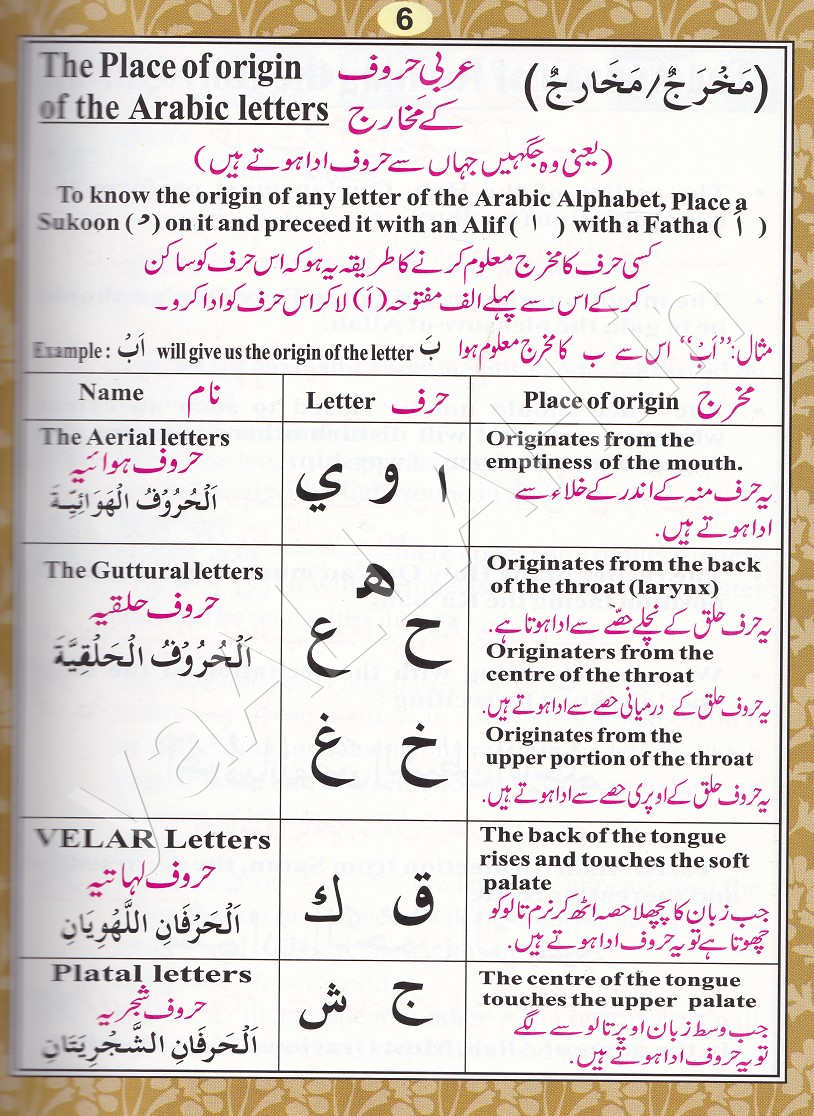 6
The Place of origin عربی حروف (مَخْرَجٌ/مَخَارِجٌ)
of the Arabic letters کے مخارج
(یعنی وہ جگہیں جہاں سے حروف ادا ہوتے ہیں)
To know the origin of any letter of the Arabic Alphabet, Place a
Sukoon ( ْ ) on it and preceed it with an Alif ( ا ) with a Fatha ( اَ )
کسی حرف کا مخرج معلوم کرنے کا طریقہ یہ ہو کہ اس حرف کو ساکن
کر کے اس سے پہلے الف مفتوحہ (اَ) لا کر اس حرف کو ادا کرو۔
Example : اَبْ will give us the origin of the letter بَ مثال: ”اَبْ“ اس سے ب کا مخرج معلوم ہوا
Name نام
Letter حرف
Place of origin مخرج
The Aerial letters
حروف ہوائیہ
اَلْحُرُوْفُ الْهَوَائِيَّةَ
ا و ي
Originates from the
emptiness of the mouth.
یہ حرف منہ کے اندر کے خلاء سے
ادا ہوتے ہیں.
The Guttural letters
حروف حلقیہ
اَلْحُرُوْفُ الْحَلْقِيَّةَ
ھ
ح ع
خ غ
Originates from the back
of the throat (larynx)
یہ حرف حلق کے نچلے حصّے سے ادا ہوتا ہے.
Originaters from the
centre of the throat
یہ حروف حلق کے درمیانی حصے سے ادا ہوتے ہیں.
Originates from the
upper portion of the throat
یہ حروف حلق کے اوپری حصے سے ادا ہوتے ہیں.
VELAR Letters
حروف لہاتیہ
اَلْحَرْفَانِ اللَّهْوِيَانِ
ق ك
The back of the tongue
rises and touches the soft
palate
جب زبان کا پچھلا حصہ اٹھ کر نرم تالو کو
چھوتا ہے تو یہ حروف ادا ہوتے ہیں.
Platal letters
حروف شجریہ
اَلْحَرفَانِ الشَّجْرِيَتَانِ
ج ش
The centre of the tongue
touches the upper palate
جب وسط زبان اوپر تالو سے لگے
تو یہ حروف ادا ہوتے ہیں.